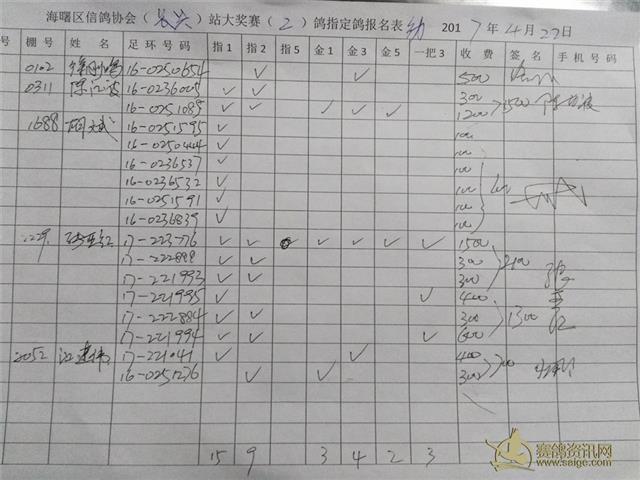 海曙区信鸽协会（长兴）站大奖赛（2）鸽指定鸽报名表 幼 2017年4月27日
号 棚号 姓名 足环号码 指1 指2 指5 金1 金3 金5 一把3 收费 签名 手机号码
0102 16-0250654 ✓ ✓ 500
0311 16-0236005 ✓ ✓ 300
16-0251085 ✓ ✓ ✓ ✓ ✓ 1200 1500
1688 16-0251595 ✓ 100
16-0250444 ✓ 100
16-0236537 ✓ 100
16-0236532 ✓ 100
16-0251591 ✓ 100
16-0236839 ✓ 100
17-223776 ✓ ✓ ✓ ✓ ✓ ✓ 1500
17-222888 ✓ ✓ 300 2100
17-221993 ✓ ✓ 300
17-221995 ✓ ✓ 400
17-222884 ✓ ✓ 300 1300
17-221994 ✓ ✓ ✓ 600
2052 江建伟 17-221041 ✓ ✓ 400
16-0251276 ✓ ✓ 300 700
15 9 3 4 2 3
赛鸽资讯网
www.saige.com